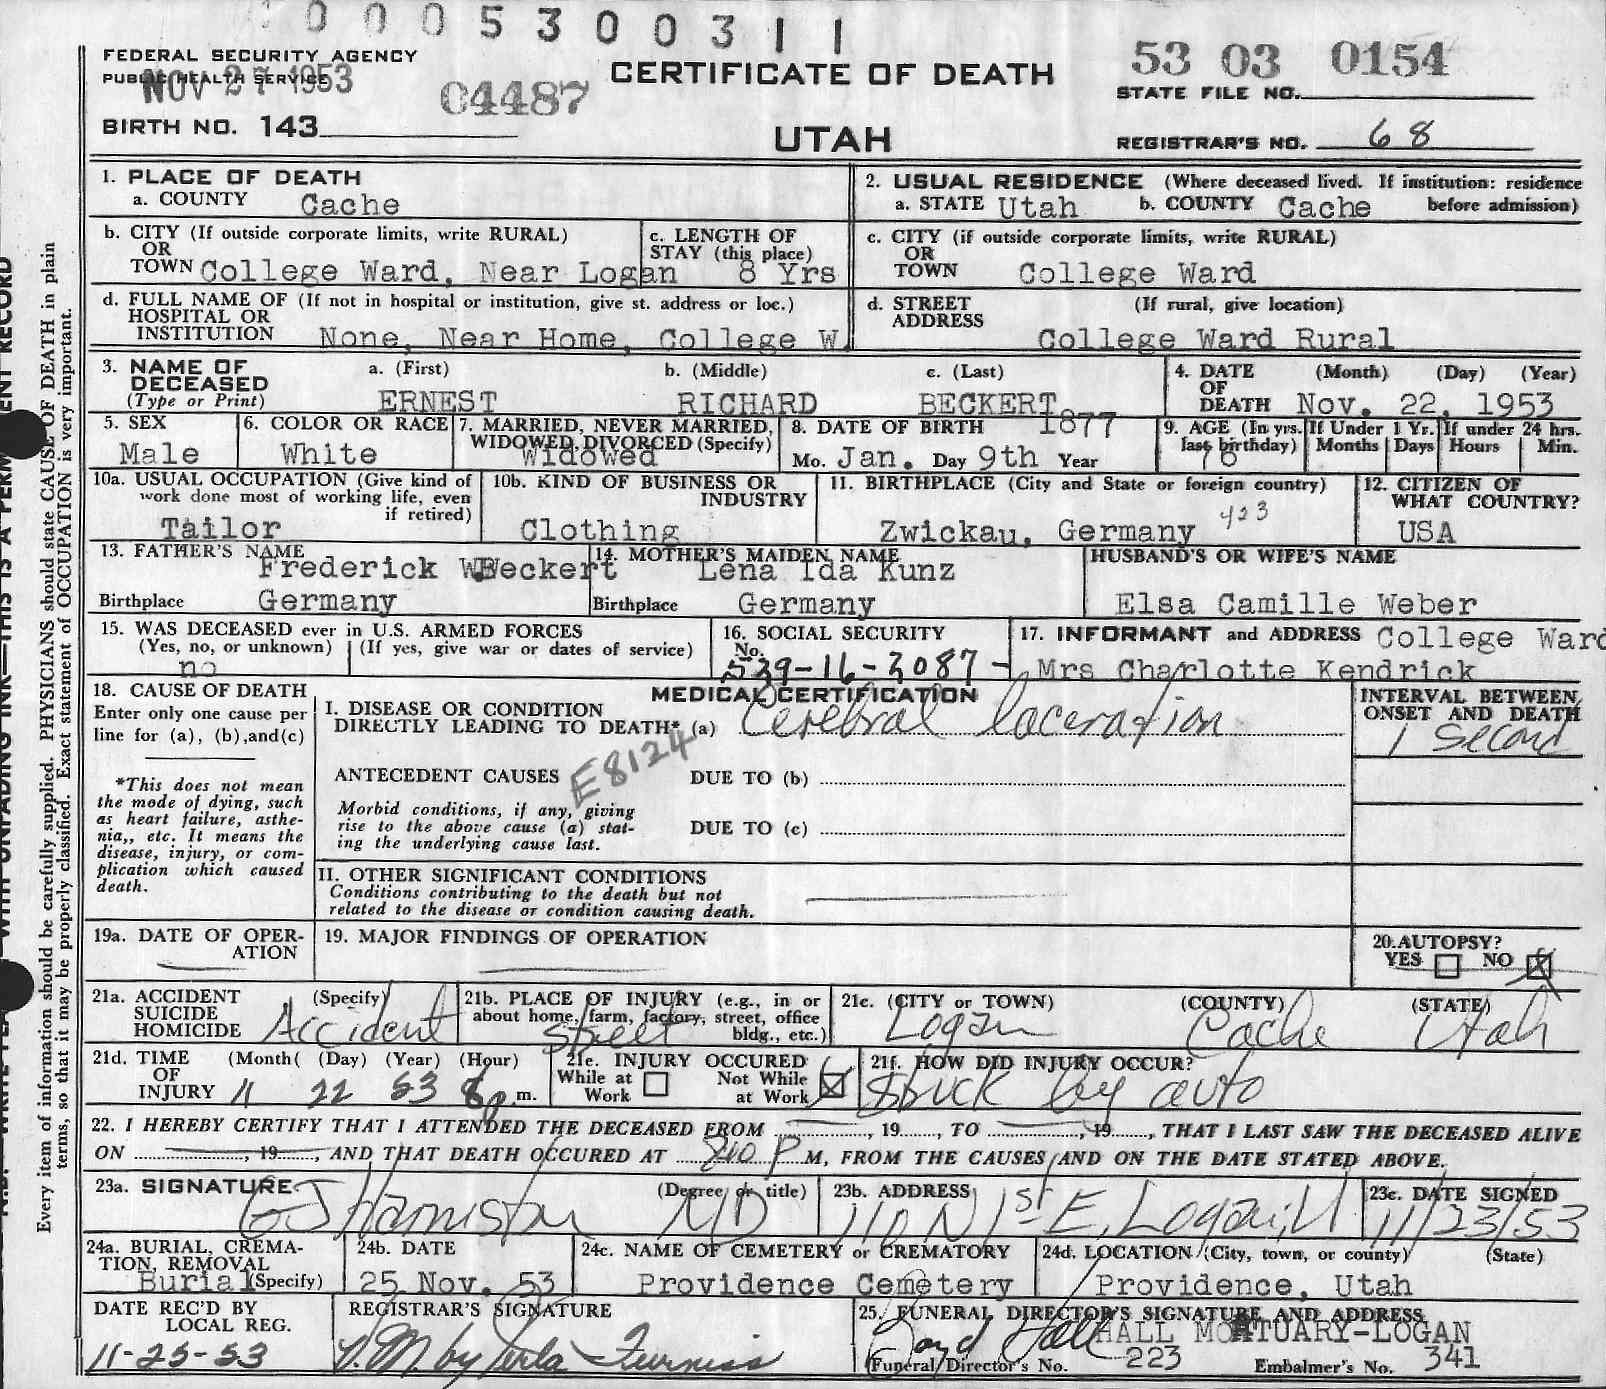 0 0 0 5 3 0 0 3 1 1
FEDERAL SECURITY AGENCY
PUBLIC HEALTH SERVICE
NOV 27 1953
04487
CERTIFICATE OF DEATH
UTAH
53 03 0154
STATE FILE NO.
BIRTH NO. 143
REGISTRAR'S NO. 68
Every item of information should be carefully supplied. PHYSICIANS should state CAUSE OF DEATH in plain
terms, so that it may be properly classified. Exact statement of OCCUPATION is very important.
1. PLACE OF DEATH
a. COUNTY Cache
2. USUAL RESIDENCE (Where deceased lived. If institution: residence
a. STATE Utah b. COUNTY Cache before admission)
b. CITY (If outside corporate limits, write RURAL)
OR
TOWN College Ward, Near Logan
c. LENGTH OF
STAY (this place)
8 Yrs
c. CITY (if outside corporate limits, write RURAL)
OR
TOWN College Ward
d. FULL NAME OF (If not in hospital or institution, give st. address or loc.)
HOSPITAL OR
INSTITUTION None, Near Home, College W.
d. STREET (If rural, give location)
ADDRESS
College Ward Rural
3. NAME OF a. (First) b. (Middle) c. (Last)
DECEASED
(Type or Print) ERNEST RICHARD BECKERT
4. DATE (Month) (Day) (Year)
OF
DEATH Nov. 22, 1953
5. SEX
Male
6. COLOR OR RACE
White
7. MARRIED, NEVER MARRIED,
WIDOWED, DIVORCED (Specify)
Widowed
8. DATE OF BIRTH 1877
Mo. Jan. Day 9th Year
9. AGE (In yrs.
last birthday)
If Under 1 Yr.
Months Days
If under 24 hrs.
Hours Min.
10a. USUAL OCCUPATION (Give kind of
work done most of working life, even
if retired)
Tailor
10b. KIND OF BUSINESS OR
INDUSTRY
Clothing
11. BIRTHPLACE (City and State or foreign country)
423
Zwickau, Germany
12. CITIZEN OF
WHAT COUNTRY?
USA
13. FATHER'S NAME
Frederick W. Beckert
Birthplace Germany
14. MOTHER'S MAIDEN NAME
Lena Ida Kunz
Birthplace Germany
HUSBAND'S OR WIFE'S NAME
Elsa Camille Weber
15. WAS DECEASED ever in U.S. ARMED FORCES
(Yes, no, or unknown) (If yes, give war or dates of service)
no
16. SOCIAL SECURITY
No.
529-16-3087
17. INFORMANT and ADDRESS College Ward
Mrs Charlotte Kendrick
18. CAUSE OF DEATH
Enter only one cause per
line for (a), (b),and(c)
*This does not mean
the mode of dying, such
as heart failure, asthe-
nia,, etc. It means the
disease, injury, or com-
plication which caused
death.
MEDICAL CERTIFICATION
I. DISEASE OR CONDITION
DIRECTLY LEADING TO DEATH* (a) Cerebral laceration
E8124
ANTECEDENT CAUSES DUE TO (b)
Morbid conditions, if any, giving
rise to the above cause (a) stat-
ing the underlying cause last.
DUE TO (c)
II. OTHER SIGNIFICANT CONDITIONS
Conditions contributing to the death but not
related to the disease or condition causing death.
INTERVAL BETWEEN
ONSET AND DEATH
1 Second
19a. DATE OF OPER-
ATION
19. MAJOR FINDINGS OF OPERATION
20. AUTOPSY?
YES NO X
21a. ACCIDENT (Specify)
SUICIDE
HOMICIDE Accident
21b. PLACE OF INJURY (e.g., in or
about home, farm, factory, street, office
bldg., etc.)
Street
21c. (CITY or TOWN) (COUNTY) (STATE)
Logan Cache Utah
21d. TIME (Month( (Day) (Year) (Hour)
OF
INJURY 11 22 53 8 p m.
21e. INJURY OCCURED
While at Not While
Work at Work X
21f. HOW DID INJURY OCCUR?
Struck by auto
22. I HEREBY CERTIFY THAT I ATTENDED THE DECEASED FROM , 19 , TO , 19 , THAT I LAST SAW THE DECEASED ALIVE
ON , 19 , AND THAT DEATH OCCURED AT 810 P M, FROM THE CAUSES AND ON THE DATE STATED ABOVE.
23a. SIGNATURE (Degree or title)
MD
23b. ADDRESS
110 N 1st E, Logan, U
23c. DATE SIGNED
11/23/53
24a. BURIAL, CREMA-
TION, REMOVAL
Burial (Specify)
24b. DATE
25 Nov. 53
24c. NAME OF CEMETERY or CREMATORY
Providence Cemetery
24d. LOCATION (City, town, or county) (State)
Providence, Utah
DATE REC'D BY
LOCAL REG.
11-25-53
REGISTRAR'S SIGNATURE
25. FUNERAL DIRECTOR'S SIGNATURE AND ADDRESS
HALL MORTUARY-LOGAN
(Funeral Director's No. 223 Embalmer's No. 341